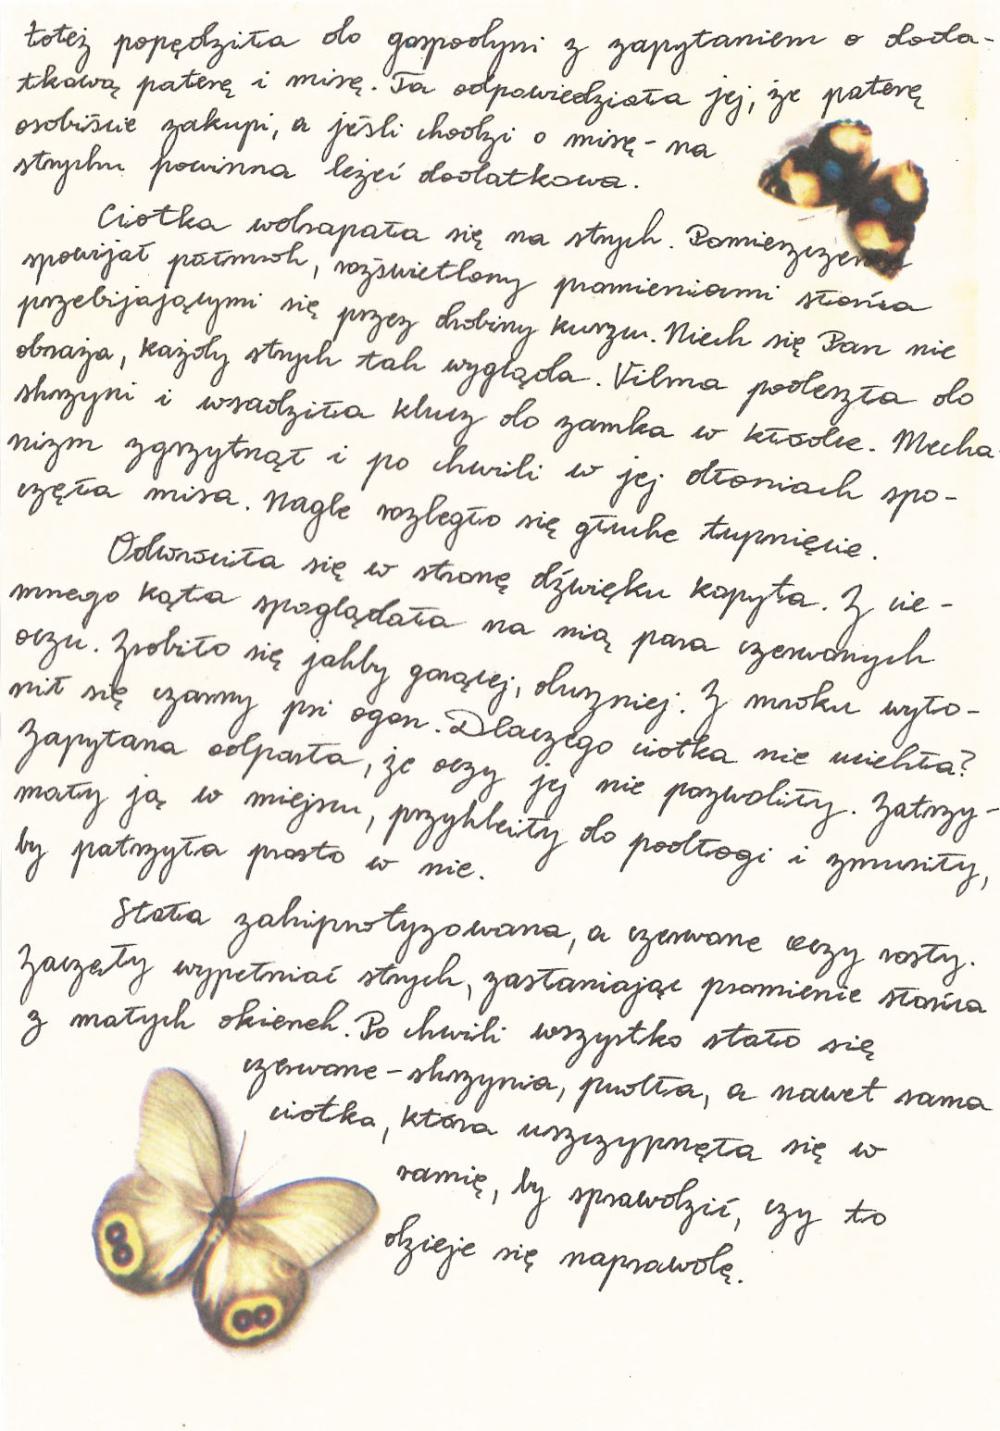 toteż popędziła do gospodyni z zapytaniem o doda-
tkową paterę i misę. Ta odpowiedziała jej, że paterę
osobiście zakupi, a jeśli chodzi o misę - na
strychu powinna leżeć dodatkowa.
Ciotka wdrapała się na strych. Pomieszczenie
spowijał półmrok, rozświetlony promieniami słońca
przebijającymi się przez drobiny kurzu. Niech się Pan nie
obraża, każdy strych tak wygląda. Vilma podeszła do
skrzyni i wsadziła klucz do zamka w kłódce. Mecha
nizm zgrzytnął i po chwili w jej dłoniach spo-
częła misa. Nagle rozległo się głuche tupnięcie.
Odwróciła się w stronę dźwięku kopyta. Z cie-
mnego kąta spoglądała na nią para czerwonych
oczu. Zrobiło się jakby goręcej, duszniej. Z mroku wyło-
nił się czarny psi ogon. Dlaczego ciotka nie uciekła?
Zapytana odparła, że oczy jej nie pozwoliły. Zatrzy-
mały ją w miejscu, przykleiły do podłogi i zmusiły,
by patrzyła prosto w nie.
Stała zahipnotyzowana, a czerwone oczy rosły.
Zaczęły wypełniać strych, zasłaniając promienie słońca
z małych okienek. Po chwili wszystko stało się
czerwone - skrzynia, pudła, a nawet sama
ciotka, która uszczypnęła się w
ramię, by sprawdzić, czy to
dzieje się naprawdę.